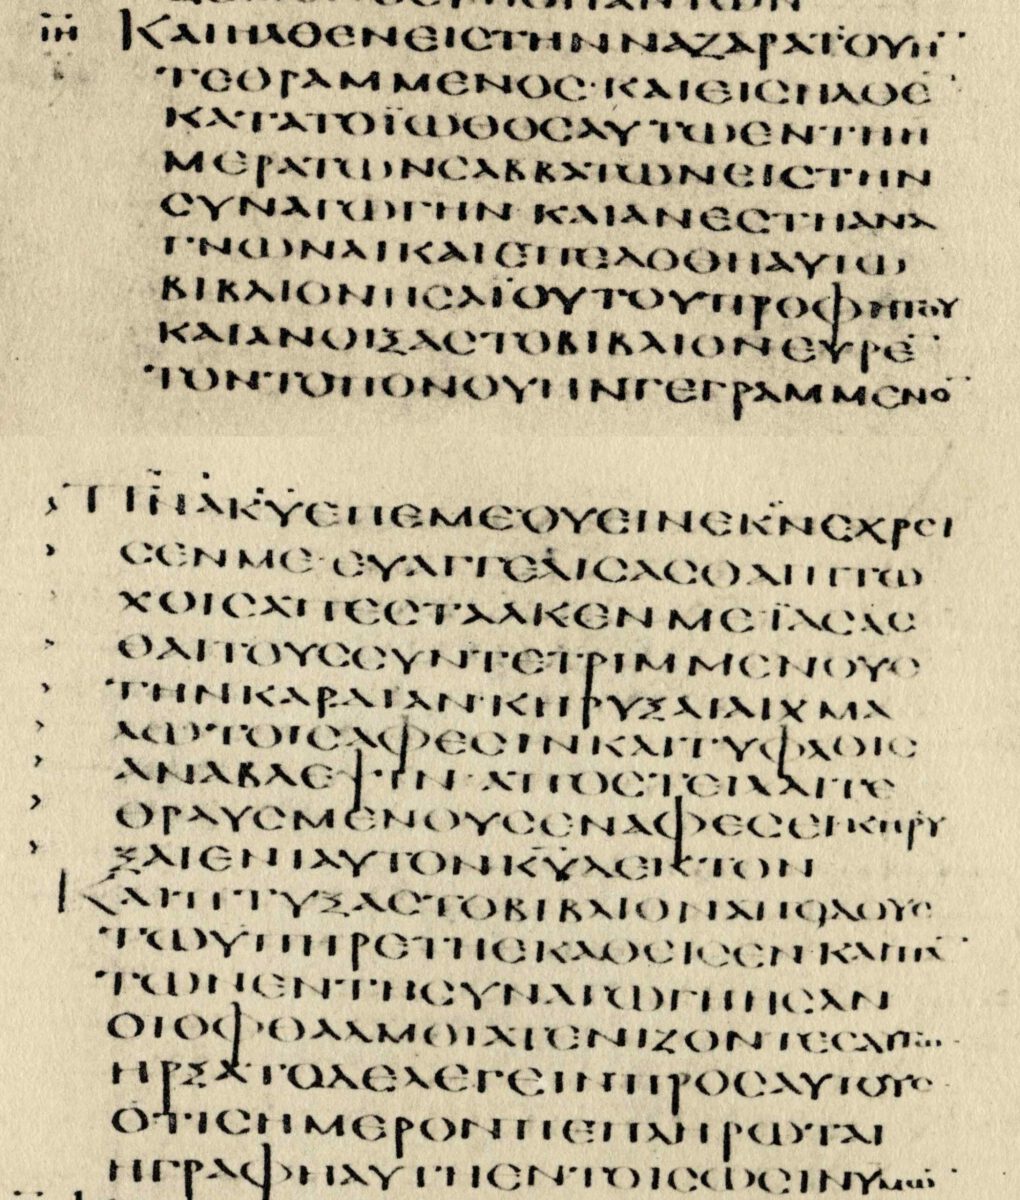 ΙΗ ΚΑΙΗΛΘΕΝΕΙϹΤΗΝΝΑΖΑΡΑΤΟΥΗ
ΤΕΘΡΑΜΜΕΝΟϹ·ΚΑΙΕΙϹΗΛΘΕ
ΚΑΤΑΤΟΪΩΘΟϹΑΥΤΩΕΝΤΗΗ
ΜΕΡΑΤΩΝϹΑΒΒΑΤΩΝΕΙϹΤΗΝ
ϹΥΝΑΓΩΓΗΝ·ΚΑΙΑΝΕϹΤΗΑΝΑ
ΓΝΩΝΑΙΚΑΙΕΠΕΔΟΘΗΑΥΤΩ
ΒΙΒΛΙΟΝΗϹΑΪΟΥΤΟΥΠΡΟΦΗΤΟΥ
ΚΑΙΑΝΟΙΞΑϹΤΟΒΙΒΛΙΟΝΕΥΡΕ
ΤΟΝΤΟΠΟΝΟΥΗΝΓΕΓΡΑΜΜΕΝΟ
Π̅Ν̅Α̅Κ̅Υ̅ΕΠΕΜΕΟΥΕΙΝΕΚΝΕΧΡΕΙ
ϹΕΝΜΕ·ΕΥΑΓΓΕΛΙϹΑϹΘΑΙΠΤΩ
ΧΟΙϹΑΠΕϹΤΑΛΚΕΝΜΕΪΑϹΑϹ
ΘΑΙΤΟΥϹϹΥΝΤΕΤΡΙΜΜΕΝΟΥϹ
ΤΗΝΚΑΡΔΙΑΝ·ΚΗΡΥΞΑΙΑΙΧΜΑ
ΛΩΤΟΙϹΑΦΕϹΙΝΚΑΙΤΥΦΛΟΙϹ
ΑΝΑΒΛΕΨΙΝ·ΑΠΟϹΤΕΙΛΑΙΤΕ
ΘΡΑΥϹΜΕΝΟΥϹΕΝΑΦΕϹΕΙΚΗΡΥ
ΞΑΙΕΝΙΑΥΤΟΝΚ̅Υ̅ΔΕΚΤΟΝ
ΚΑΙΠΤΥΞΑϹΤΟΒΙΒΛΙΟΝΑΠΟΔΟΥϹ
ΤΩΥΠΗΡΕΤΗΕΚΑΘΕΙϹΕΝΚΑΙΠΑ
ΤΩΝΕΝΤΗϹΥΝΑΓΩΓΗΗϹΑΝ
ΟΙΟΦΘΑΛΜΟΙΑΤΕΝΙΖΟΝΤΕϹΑΥΤΩ·
ΗΡΞΑΤΟΔΕΛΕΓΕΙΝΠΡΟϹΑΥΤΟΥϹ
ΟΤΙϹΗΜΕΡΟΝΠΕΠΛΗΡΩΤΑΙ
ΗΓΡΑΦΗΑΥΤΗΕΝΤΟΙϹΩϹΙΝΥΜΩ